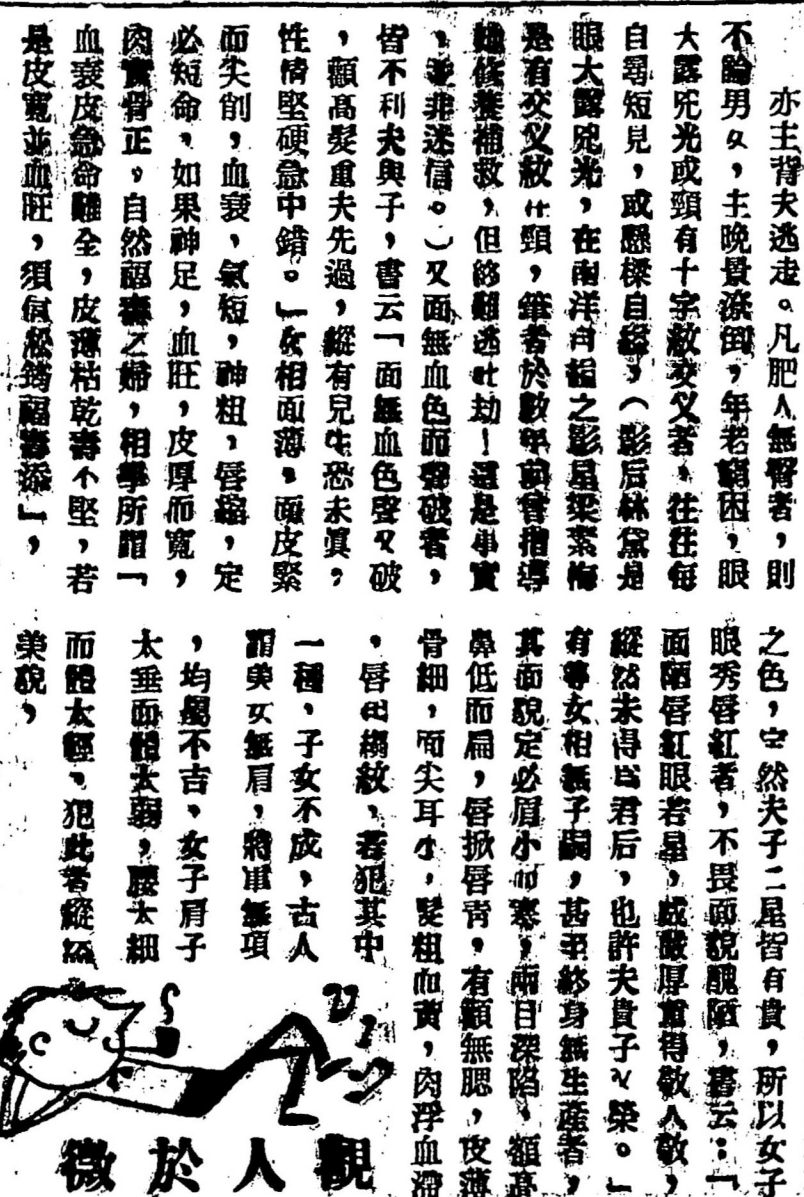 亦主背夫逃走。凡肥人無臀者，則
不論男女，主晚景潦倒，年老窮困，眼
大露兇光或頸有十字紋交叉者，往往每
自尋短見，或懸樑自縊，（影后林黛是
眼大露兇光，在南洋自縊之影星梁素梅
是有交叉紋在頸，筆者於數年前曾指導
她修養補救，但終難逃此劫！這是事實
，並非迷信。）又面無血色而聲破者，
皆不利夫與子，書云「面無血色聲又破
，顴高髮重夫先過，縱有兒生恐未真，
性情堅硬急中錯。」女相面薄，面皮緊
而尖削，血衰，氣短，神粗，唇縮，定
必短命，如果神足，血旺，皮厚而寬，
肉實骨正，自然福壽之婦，相學所謂「
血衰皮急命難全，皮薄枯乾壽不堅，若
是皮寬並血旺，須信松筠福壽添」，
之色，定然夫子二星皆有貴，所以女子
眼秀唇紅者，不畏面貌醜陋，書云：「
面陋唇紅眼若星，威嚴厚重得敬人敬，
縱然未得為君后，也許夫貴子又榮。」
有等女相無子嗣，甚至終身無生產者，
其面貌定必眉小而寒，兩目深陷，額高
鼻低而扁，唇掀唇青，有顴無腮，皮薄
骨細，面尖耳小，髮粗而黃，肉浮血滯
，唇無縐紋，若犯其中
一種，子女不成，古人
謂美女無肩，將軍無項
，均屬不吉，女子肩子
太垂而體太弱，腰太細
而體太輕，犯此者縱然
美貌，
觀人於微